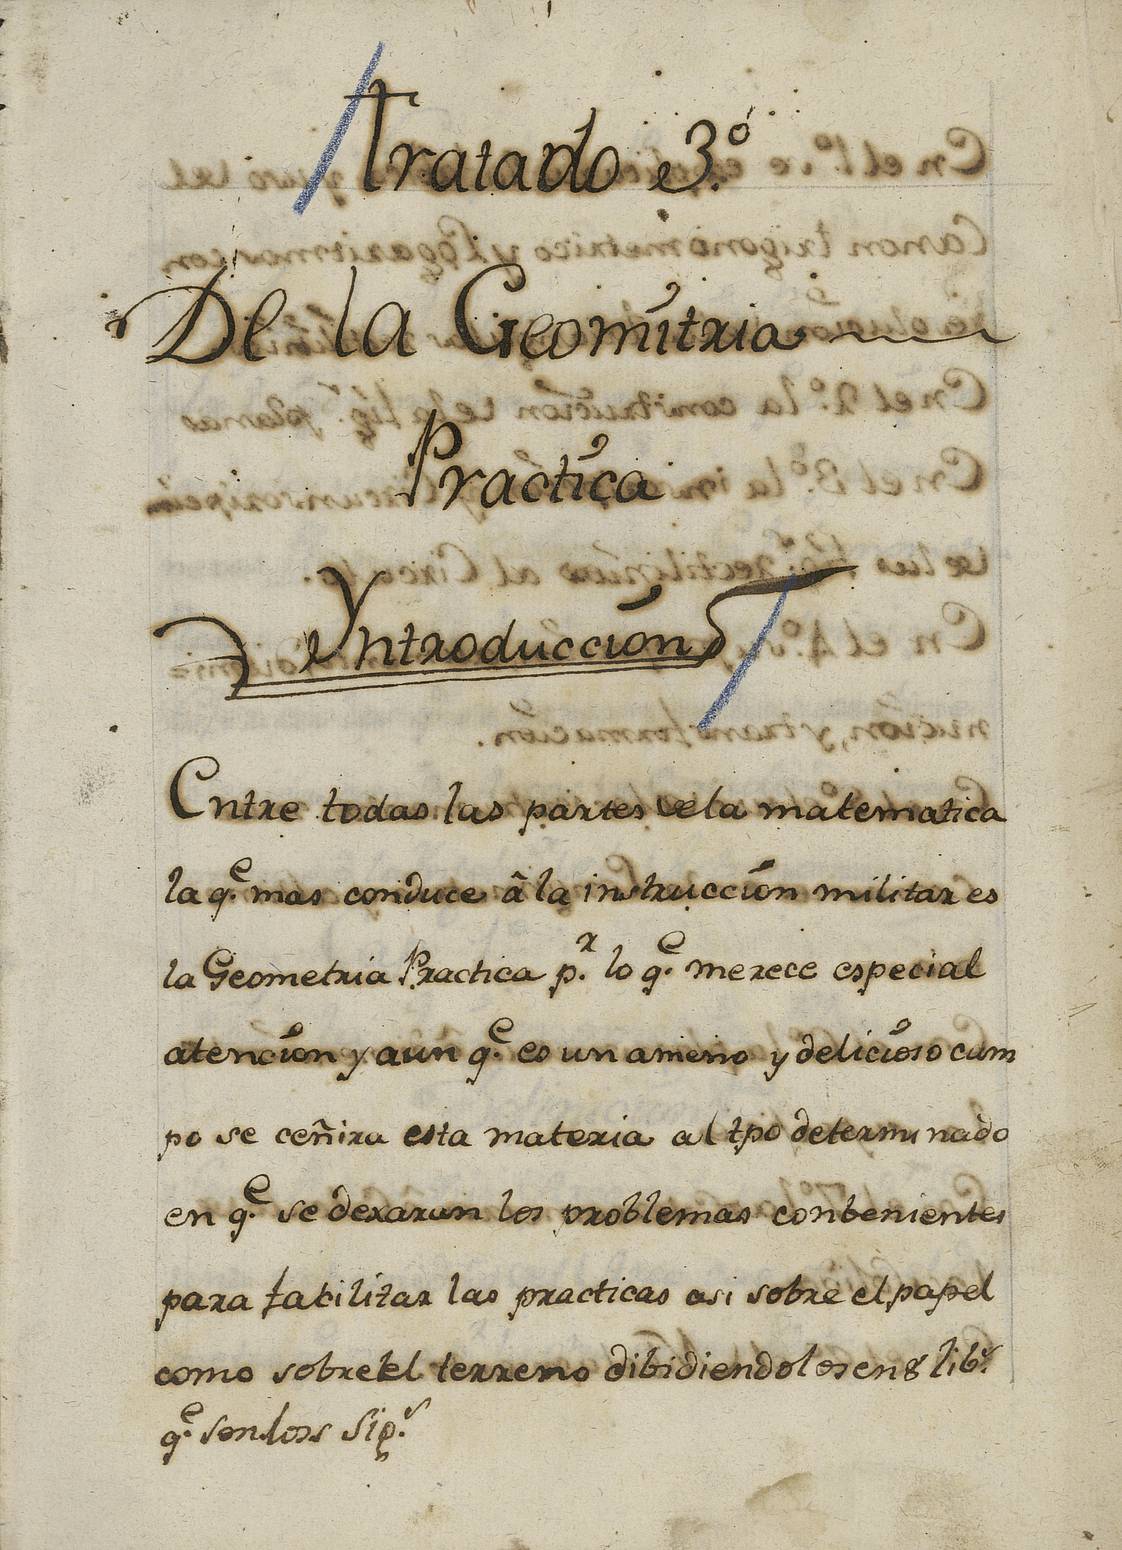 Tratado 3.º
De la Geometria
Practica
Yntroduccion
Entre todas las partes dela matematica
la q.e mas conduce â la instruccion militar es
la Geometria Practica p.r lo q.e merece especial
atencion y aun q.e es un ameno y delicioso cam
po se ceñira esta materia al tpo determinado
en q.e se dexaran los problemas conbenientes
para facilitar las practicas asi sobre el papel
como sobre el terreno dibidiendolos en 8 lib.s
q.e son los sig.s